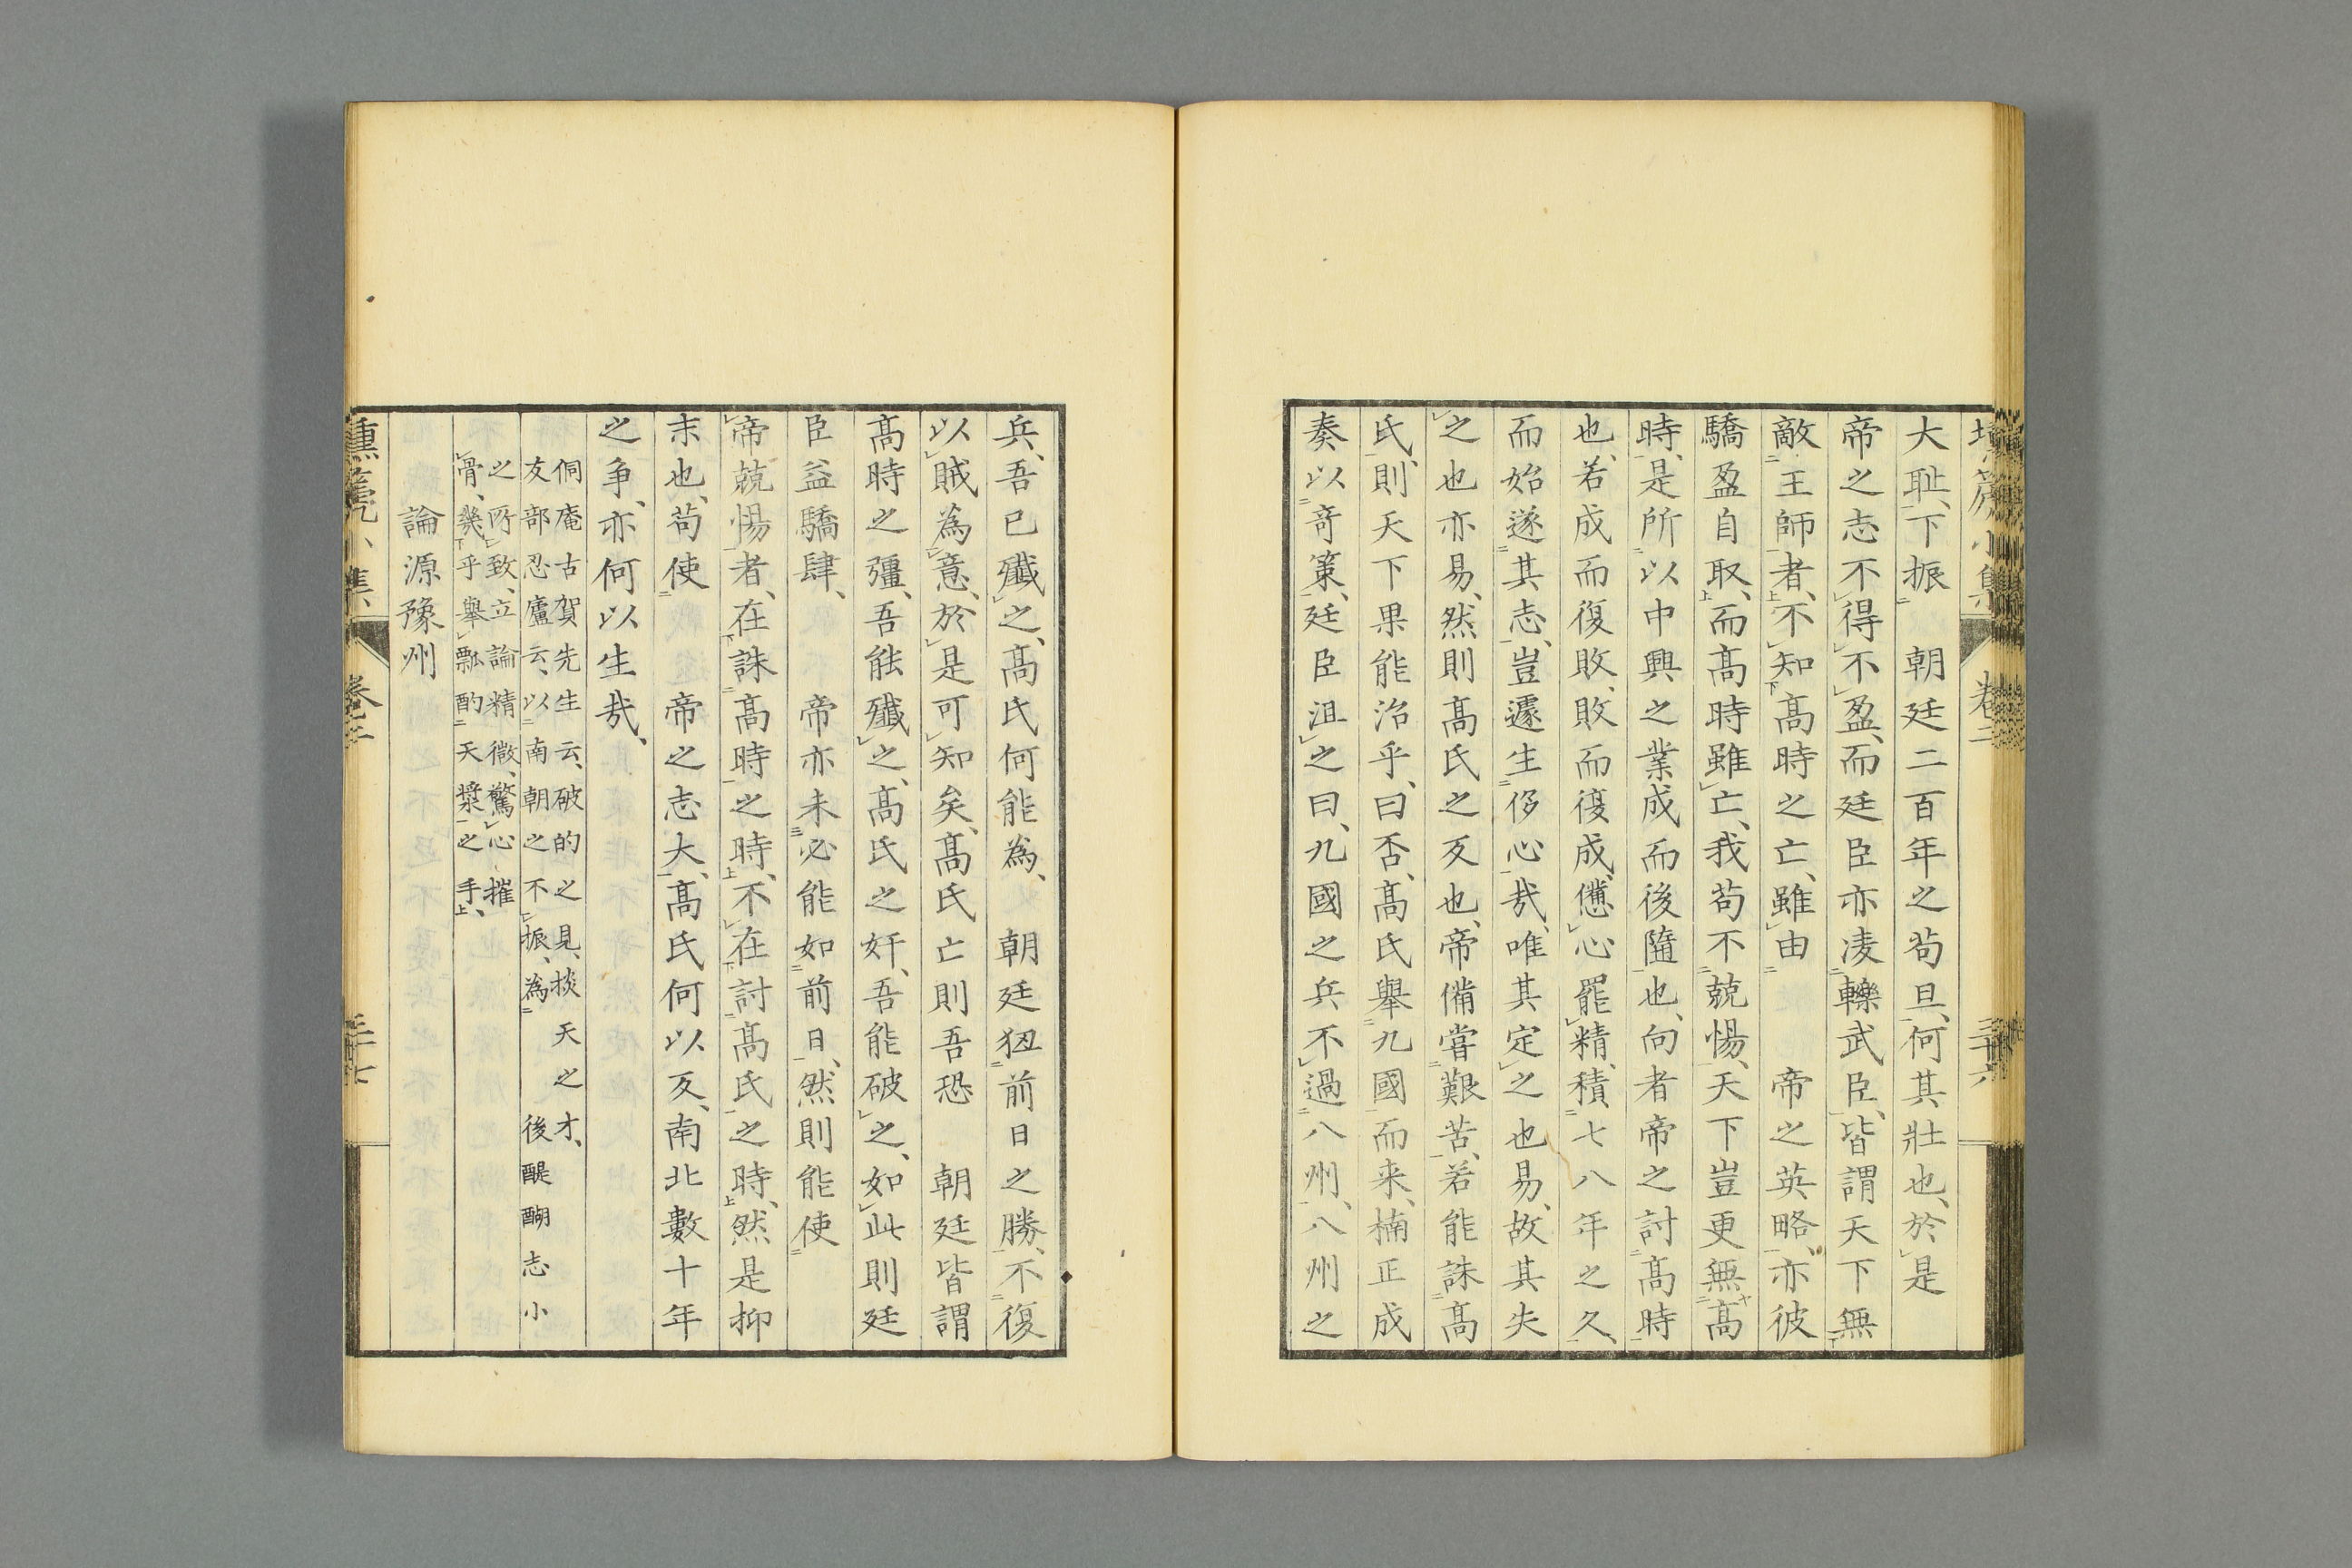 大耻、下振　朝廷二百年之苟且、何其壯也、於是
帝之志不得不盈、而廷臣亦凌轢武臣、皆謂天下無
敵王師者、不知髙時之亡、雖由　帝之英略、亦彼
驕盈自取、而髙時雖亡、我苟不兢惕、天下豈更無髙
時、是所以中興之業成而後隨也、向者帝之討髙時
也、若成而復敗、敗而復成、憊心罷精、積七八年之久、
而始遂其志、豈遽生侈心哉、唯其定之也易、故其失
之也亦易、然則髙氏之反也、帝備嘗艱苦、若能誅髙
氏、則天下果能治乎、曰否、髙氏舉九國而来、楠正成
奏以奇策、廷臣沮之曰、九國之兵不過八州、八州之
兵、吾已殲之、髙氏何能為、　朝廷狃前日之勝、不復
以賊為意、於是可知矣、髙氏亡則吾恐　朝廷皆謂
髙時之彊、吾能殲之、髙氏之奸、吾能破之、如此則廷
臣益驕肆、　帝亦未必能如前日、然則能使
帝兢惕者、在誅髙時之時、不在討髙氏之時、然是抑
末也、苟使　帝之志大、髙氏何以反、南北數十年
之争、亦何以生哉、
侗庵古賀先生云、破的之見、掞天之才、　後醍醐志小
友部忍廬云、以南朝之不振、為
之所致、立論精微、驚心摧
骨、幾乎舉瓢酌天漿之手、
論源豫州
卷二
三十六